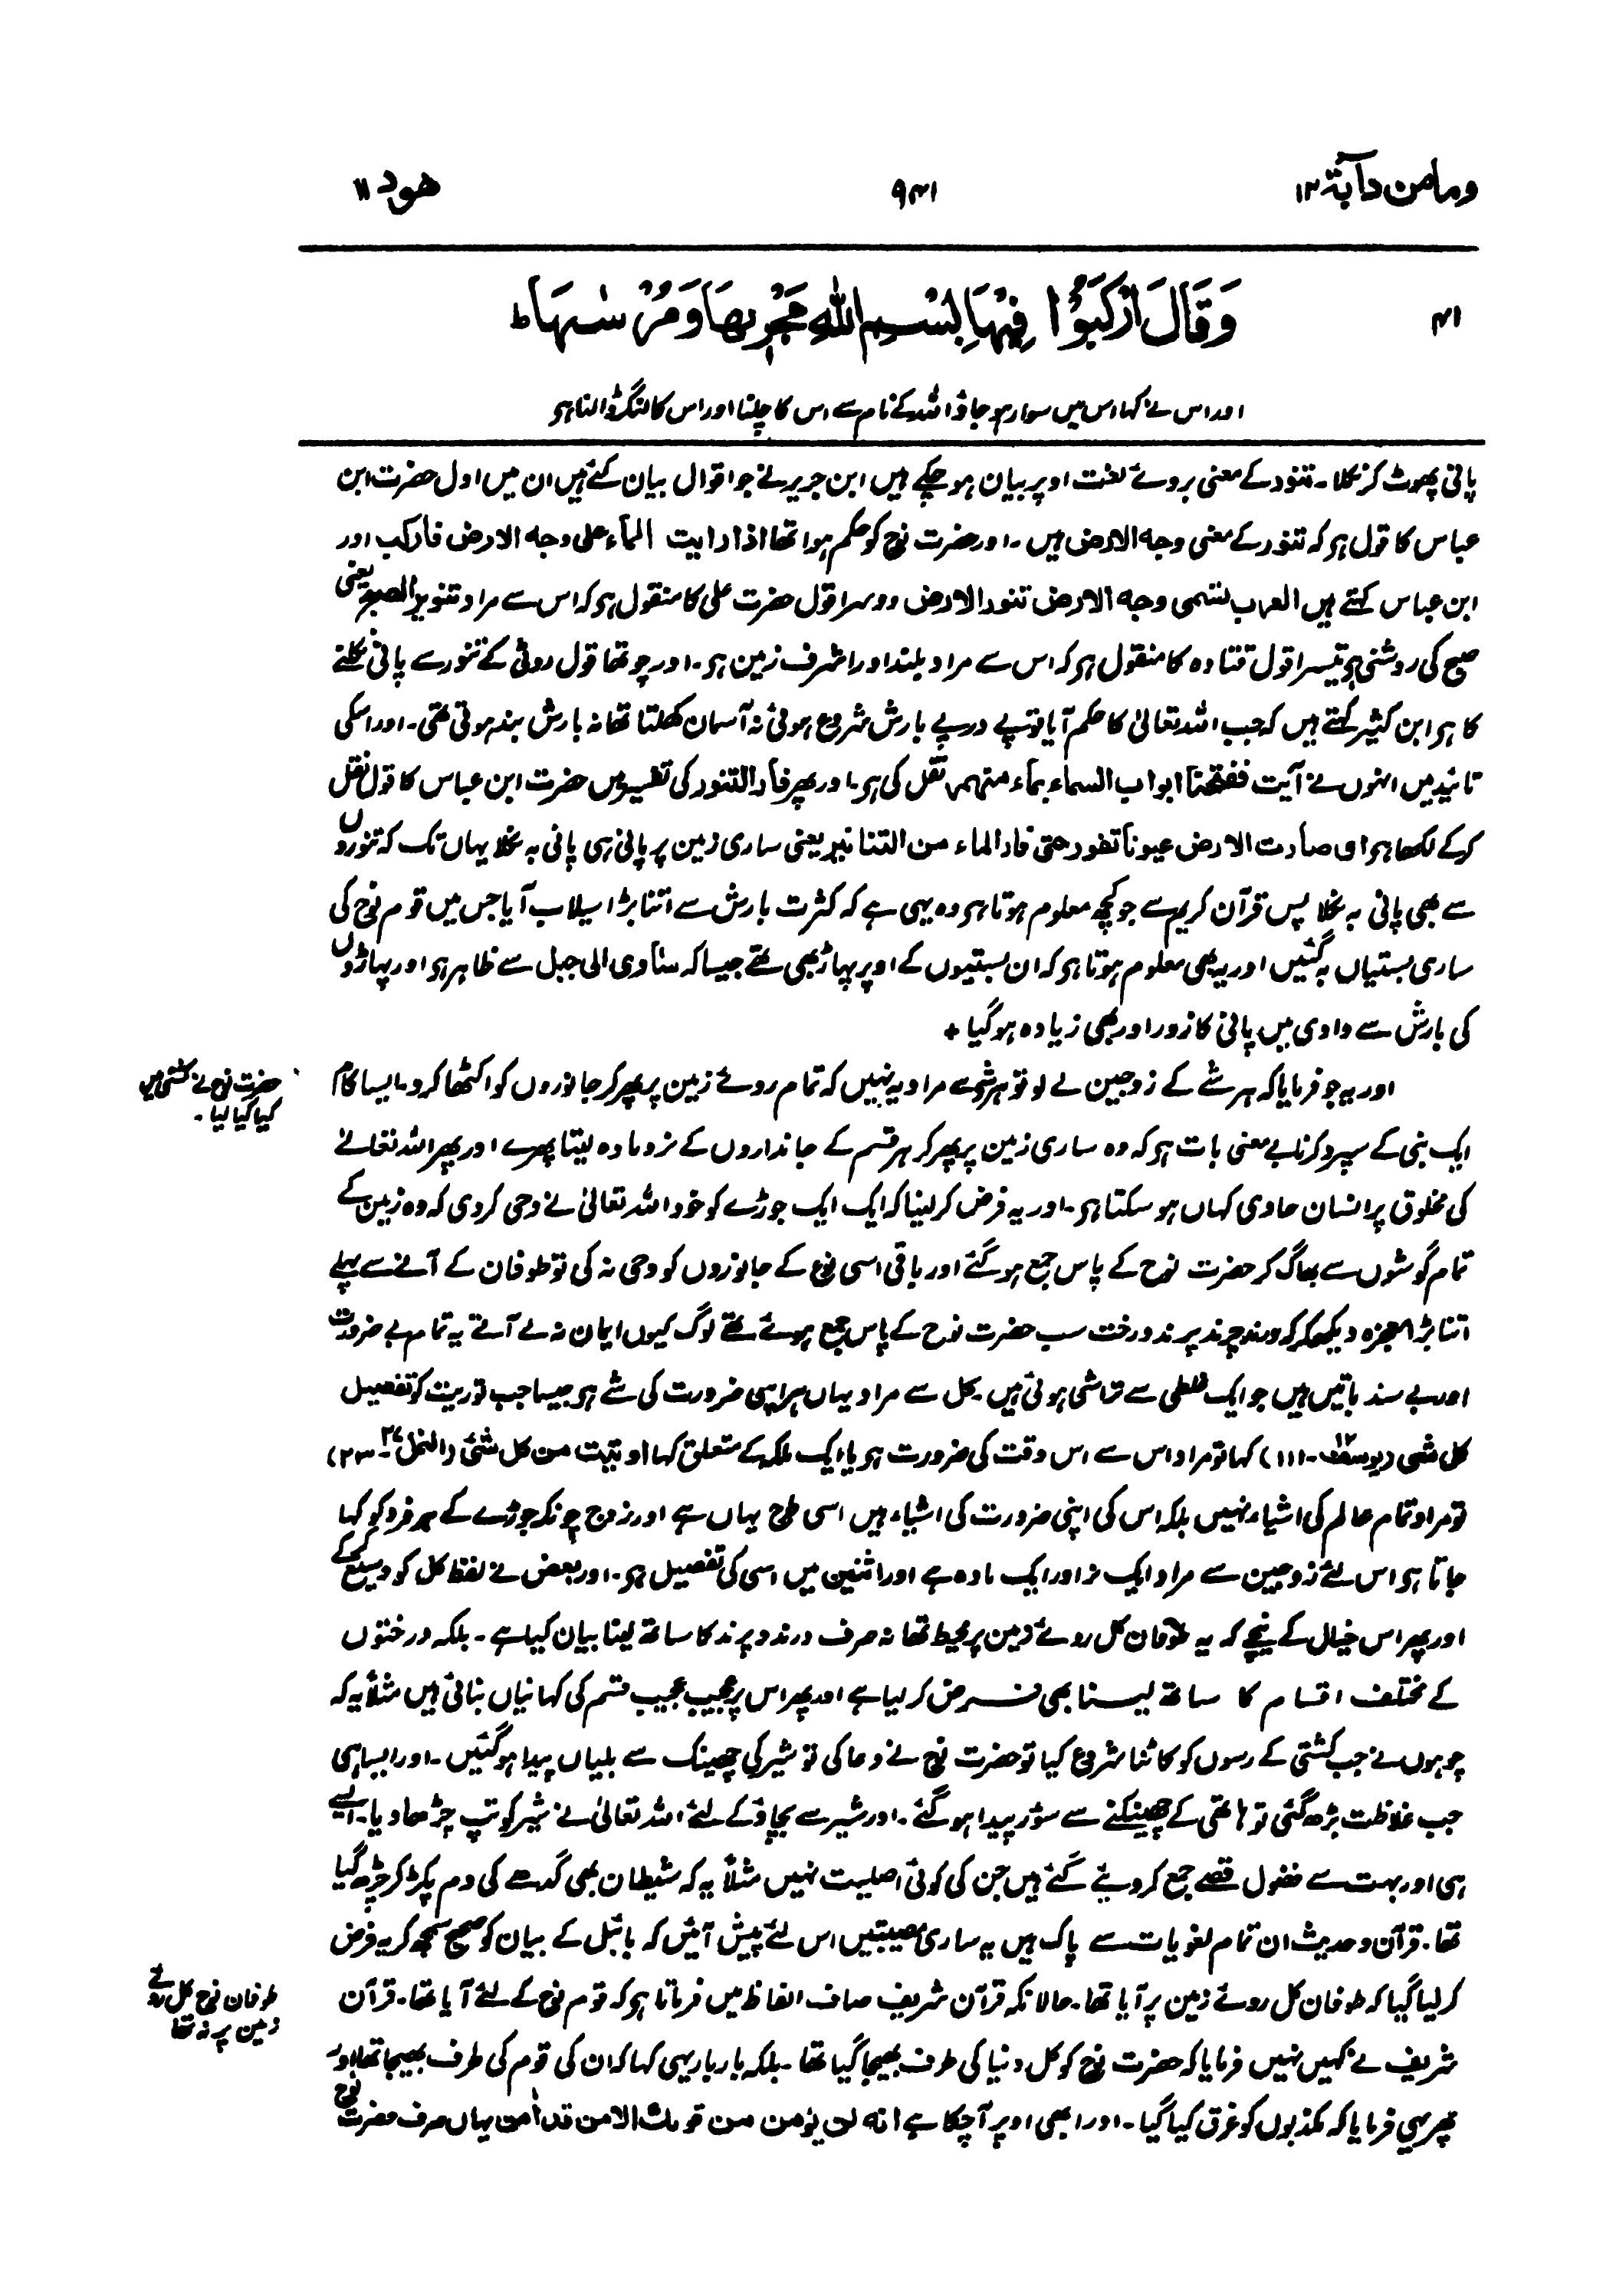 ومامن دآبة ۱۲
۹۴۱
هود ۱۱
۴۱
وَقَالَ ارْكَبُوْا فِيْهَا بِسْمِ اللّٰهِ مَجْرٖىهَا وَمُرْسٰىهَا ط
اور اس نے کہا اس میں سوار ہو جاؤ اللہ کے نام سے اس کا چلنا اور اس کا لنگر ڈالنا ہو
پانی پھوٹ کر نکلا۔ تنور کے معنی بروئے لغت اوپر بیان ہو چکے ہیں ابن جریر نے جو اقوال بیان کئے ہیں ان میں اول حضرت ابن
عباس کا قول ہو کہ تنور کے معنی وجہ الارض ہیں۔ اور حضرت نوح کو حکم ہوا تھا اذا رایت الماء علی وجہ الارض فارکب اور
ابن عباس کہتے ہیں العرب تسمی وجہ الارض تنور الارض دوسرا قول حضرت علی کا منقول ہو کہ اس سے مراد تنویر الصبح یعنی
صبح کی روشنی ہو تیسرا قول قتادہ کا منقول ہو کہ اس سے مراد بلند اور اشرف زمین ہو۔ اور چوتھا قول روٹی کے تنور سے پانی نکلنے
کا ہو ابن کثیر کہتے ہیں کہ جب اللہ تعالیٰ کا حکم آیا تو پے درپے بارش شروع ہوئی نہ آسمان کھلتا تھا نہ بارش بند ہوتی تھی۔ اور اسکی
تائید میں انہوں نے آیت ففتحنا ابواب السماء بماء منھمر نقل کی ہو۔ اور پھر فار التنور کی تفسیر میں حضرت ابن عباس کا قول نقل
کرکے لکھا ہو ای صارت الارض عیونا تفور حتی فار الماء من التنانیر یعنی ساری زمین پر پانی ہی پانی بہ نکلا یہاں تک کہ تنوروں
سے بھی پانی بہ نکلا پس قرآن کریم سے جو کچھ معلوم ہوتا ہو وہ یہی ہے کہ کثرت بارش سے اتنا بڑا سیلاب آیا جس میں قوم نوح کی
ساری بستیاں بہ گئیں اور یہ بھی معلوم ہوتا ہو کہ ان بستیوں کے اوپر پہاڑ بھی تھے جیسا کہ ساٰوی الی جبل سے ظاہر ہو اور پہاڑوں
کی بارش سے وادی میں پانی کا زور اور بھی زیادہ ہو گیا +
حضرت نوح نے کشتی میں
کیا کیا لیا۔
اور یہ جو فرمایا کہ ہر شے کے زوجین لے لو تو ہر شے سے مراد یہ نہیں کہ تمام روئے زمین پر پھر کر جانوروں کو اکٹھا کرو۔ ایسا کام
ایک نبی کے سپرد کرنا بے معنی بات ہو کہ وہ ساری زمین پر پھر کر ہر قسم کے جانداروں کے نر و مادہ لیتا پھرے اور پھر اللہ تعالےٰ
کی مخلوق پر انسان حاوی کہاں ہو سکتا ہو۔ اور یہ فرض کر لینا کہ ایک ایک جوڑے کو خود اللہ تعالیٰ نے وحی کر دی کہ وہ زمین کے
تمام گوشوں سے بھاگ کر حضرت نوح کے پاس جمع ہو گئے اور باقی اسی نوع کے جانوروں کو وحی نہ کی تو طوفان کے آنے سے پہلے
اتنا بڑا معجزہ دیکھ کر کہ درند چرند پرند درخت سب حضرت نوح کے پاس جمع ہوئے تھے لوگ کیوں ایمان نہ لے آئے یہ تمام بے ضرورت
اور بے سند باتیں ہیں جو ایک غلطی سے تراشی ہوئی ہیں۔ کل سے مراد یہاں ہر ایسی ضرورت کی شے ہو جیسا جب توریت کو تفصیل
کل شی (یوسف ۱۲۔ ۱۱۱) کہا تو مراد اس سے اس وقت کی ضرورت ہو یا ایک ملکہ کے متعلق کہا اوتیت من کل شئ (النمل ۲۷۔ ۲۳)
تو مراد تمام عالم کی اشیاء نہیں بلکہ اس کی اپنی ضرورت کی اشیاء ہیں اسی طرح یہاں ہے اور زوج چونکہ جوڑے کے ہر فرد کو کہا
جاتا ہو اس لئے زوجین سے مراد ایک نر اور ایک مادہ ہے اور اثنین میں اسی کی تفصیل ہو۔ اور بعض نے لفظ کل کو وسیع کرکے
اور پھر اس خیال کے نیچے کہ یہ طوفان کل روئے زمین پر محیط تھا نہ صرف درند و پرند کا ساتھ لینا بیان کیا ہے۔ بلکہ درختوں
کے مختلف اقسام کا ساتھ لینا بھی فرض کر لیا ہے اور پھر اس پر عجیب عجیب قسم کی کہانیاں بنائی ہیں مثلاً یہ کہ
چوہوں نے جب کشتی کے رسوں کو کاٹنا شروع کیا تو حضرت نوح نے دعا کی تو شیر کی چھینک سے بلیاں پیدا ہو گئیں۔ اور ایسا ہی
جب غلاظت بڑھ گئی تو ہاتھی کے چھینکنے سے سؤر پیدا ہو گئے۔ اور شیر سے بچاؤ کے لئے اللہ تعالیٰ نے شیر کو تپ چڑھا دیا۔ ایسے
ہی اور بہت سے فضول قصے جمع کر دیئے گئے ہیں جن کی کوئی اصلیت نہیں مثلاً یہ کہ شیطان بھی گدھے کی دم پکڑ کر چڑھ گیا
تھا۔ قرآن و حدیث ان تمام لغویات سے پاک ہیں یہ ساری مصیبتیں اس لئے پیش آئیں کہ بائبل کے بیان کو صحیح سمجھ کر یہ فرض
طوفان نوح کل روئے
زمین پر نہ تھا
کر لیا گیا کہ طوفان کل روئے زمین پر آیا تھا۔ حالانکہ قرآن شریف صاف الفاظ میں فرماتا ہو کہ قوم نوح کے لئے آیا تھا۔ قرآن
شریف نے کہیں نہیں فرمایا کہ حضرت نوح کو کل دنیا کی طرف بھیجا گیا تھا۔ بلکہ بار بار یہی کہا کہ ان کی قوم کی طرف بھیجا تھا اور
پھر یہی فرمایا کہ مکذبوں کو غرق کیا گیا۔ اور ابھی اوپر آچکا ہے انہ لن یؤمن من قومك الا من قد اٰمن یہاں صرف حضرت نوح